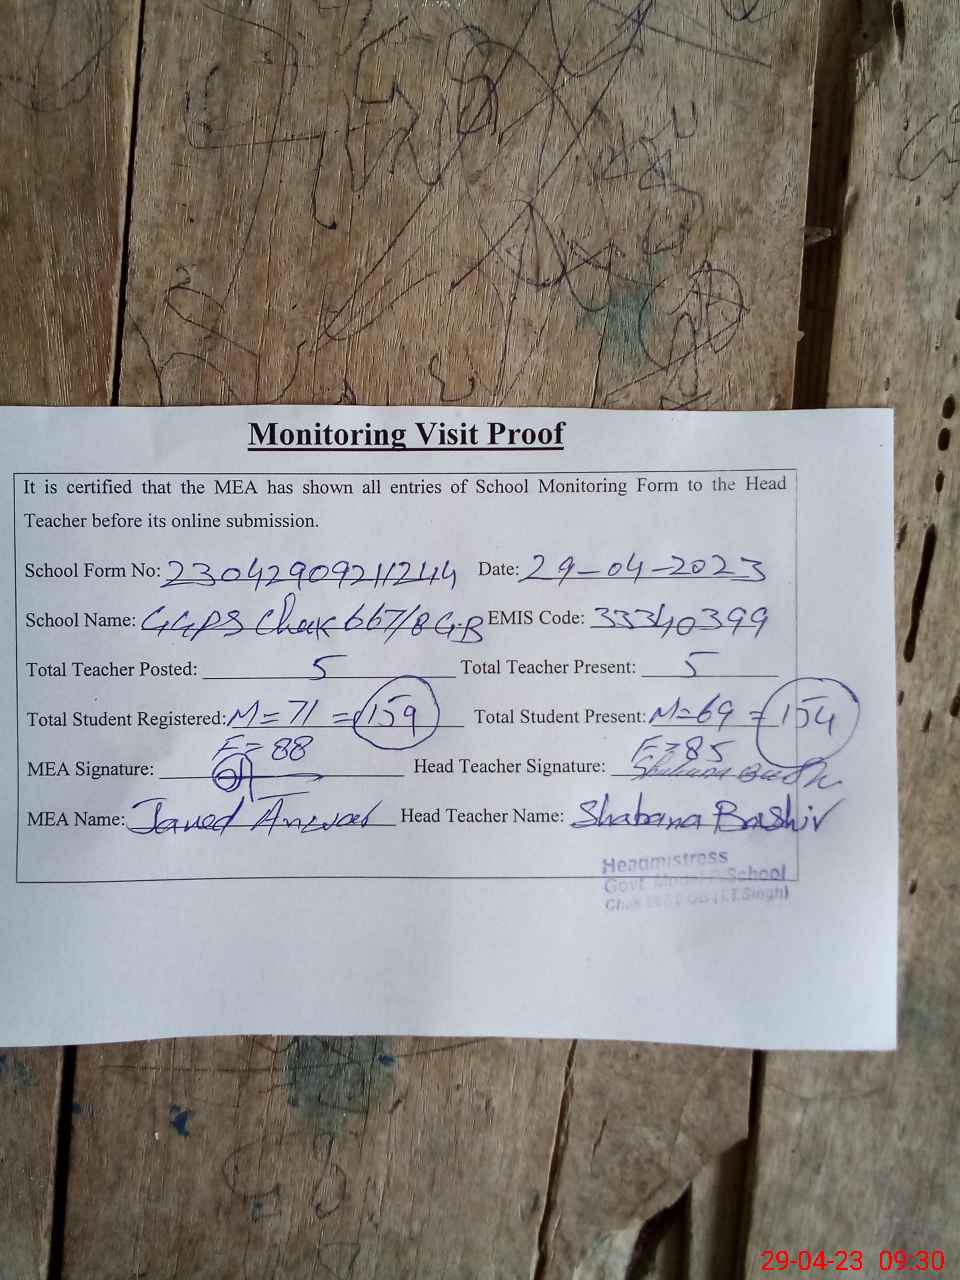 Monitoring Visit Proof
It is certified that the MEA has shown all entries of School Monitoring Form to the Head
Teacher before its online submission.
School Form No: 23042909211244 Date: 29-04-2023
School Name: GGPS Chak 667/8 GB EMIS Code: 33340399
Total Teacher Posted: 5 Total Teacher Present: 5
Total Student Registered: M=71 = 159 Total Student Present: M=69 = 154
F=88 F=85
MEA Signature: Head Teacher Signature: Shabana
MEA Name: Javed Anwar Head Teacher Name: Shabana Bashir
Headmistress
Govt. Model School
Chak GB (T.T.Singh)
29-04-23 09:30